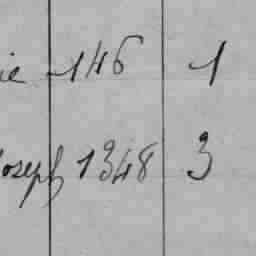 ie 146 1
Joseph 1348 3